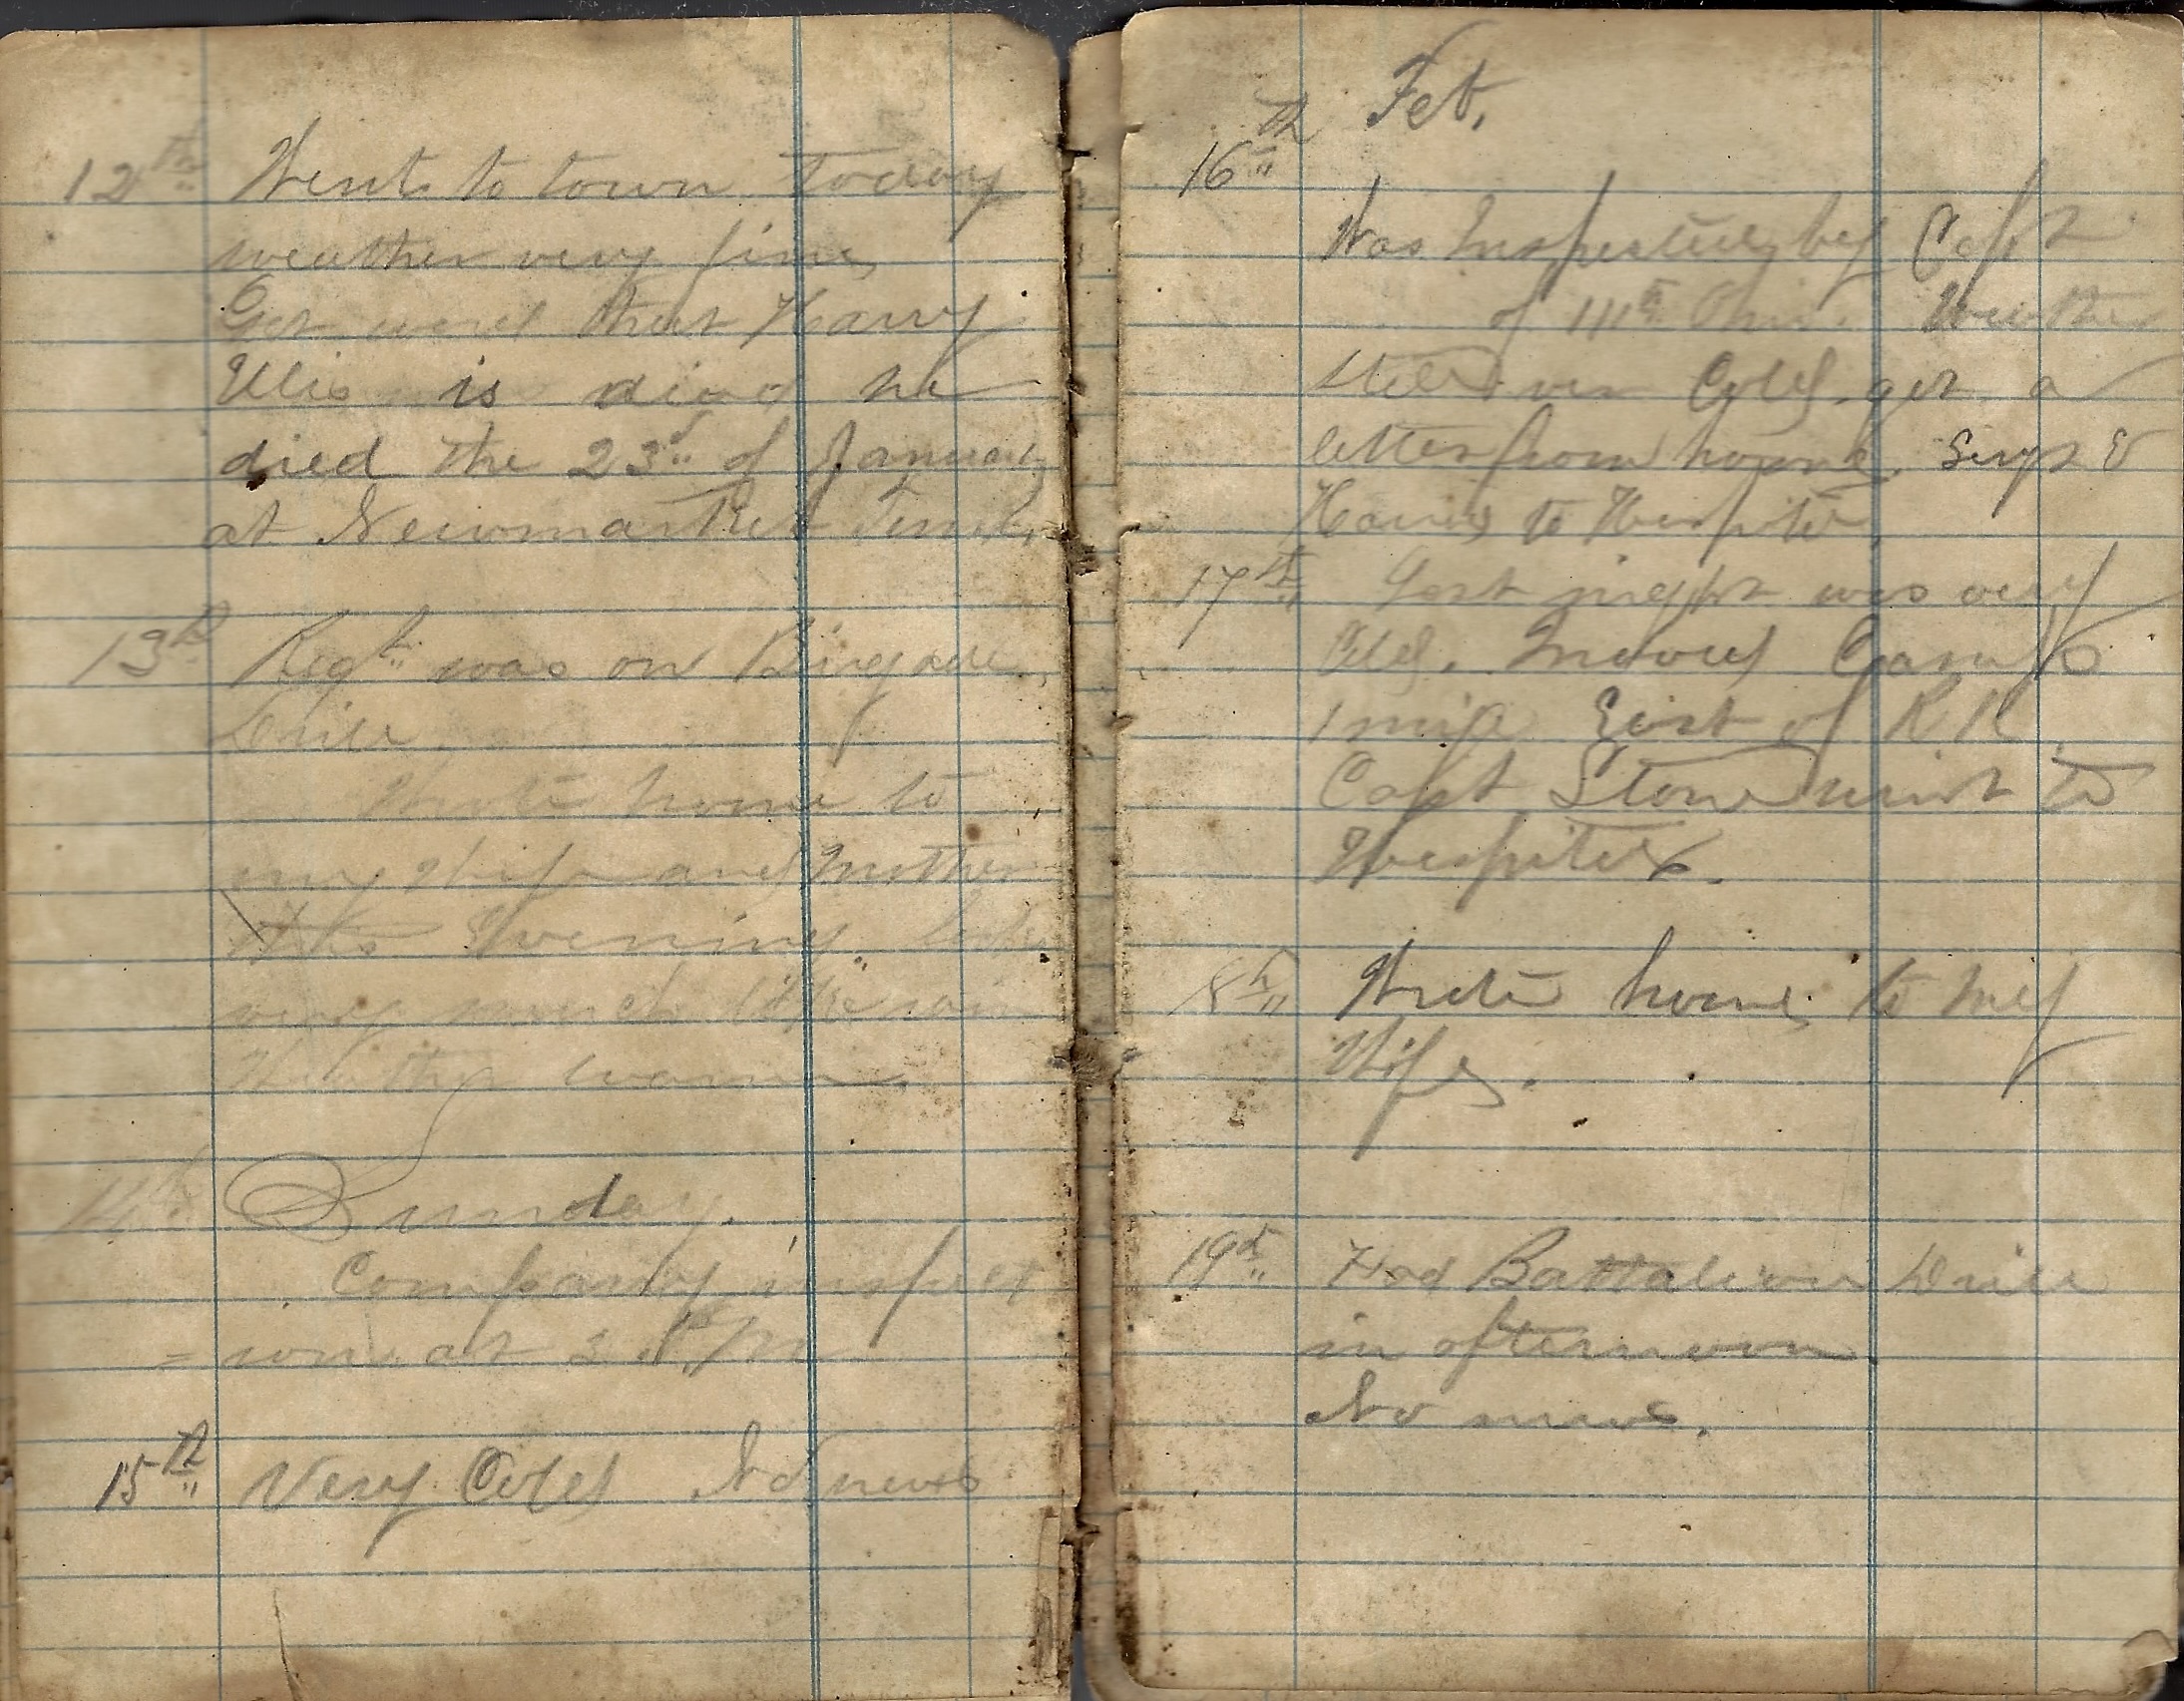 12th Went to town today
weather very fine
Got word that Harry
Ellis is dead he
died the 23d of January
at Newmarket Tenn.
13th Regt was on Brigade
Drill
Wrote home to
my Wife and Mother
this Evening. looks
very much like rain
Weather warm
14th Sunday.
Company inspect
= ion at 3 P.M
15th Very Cold No news
Feb.
16th
Was Inspected by Capt
of Ohio. Weather
still Cold. got a
letter from home. Sergt E
to Hospital.
17th Last night was very
Cold. Moved Camp
1 mile East of R R.
Capt Stone went to
Hospital.
18th Wrote home to my
Wife.
19th Had Battalion Drill
in afternoon
No news.